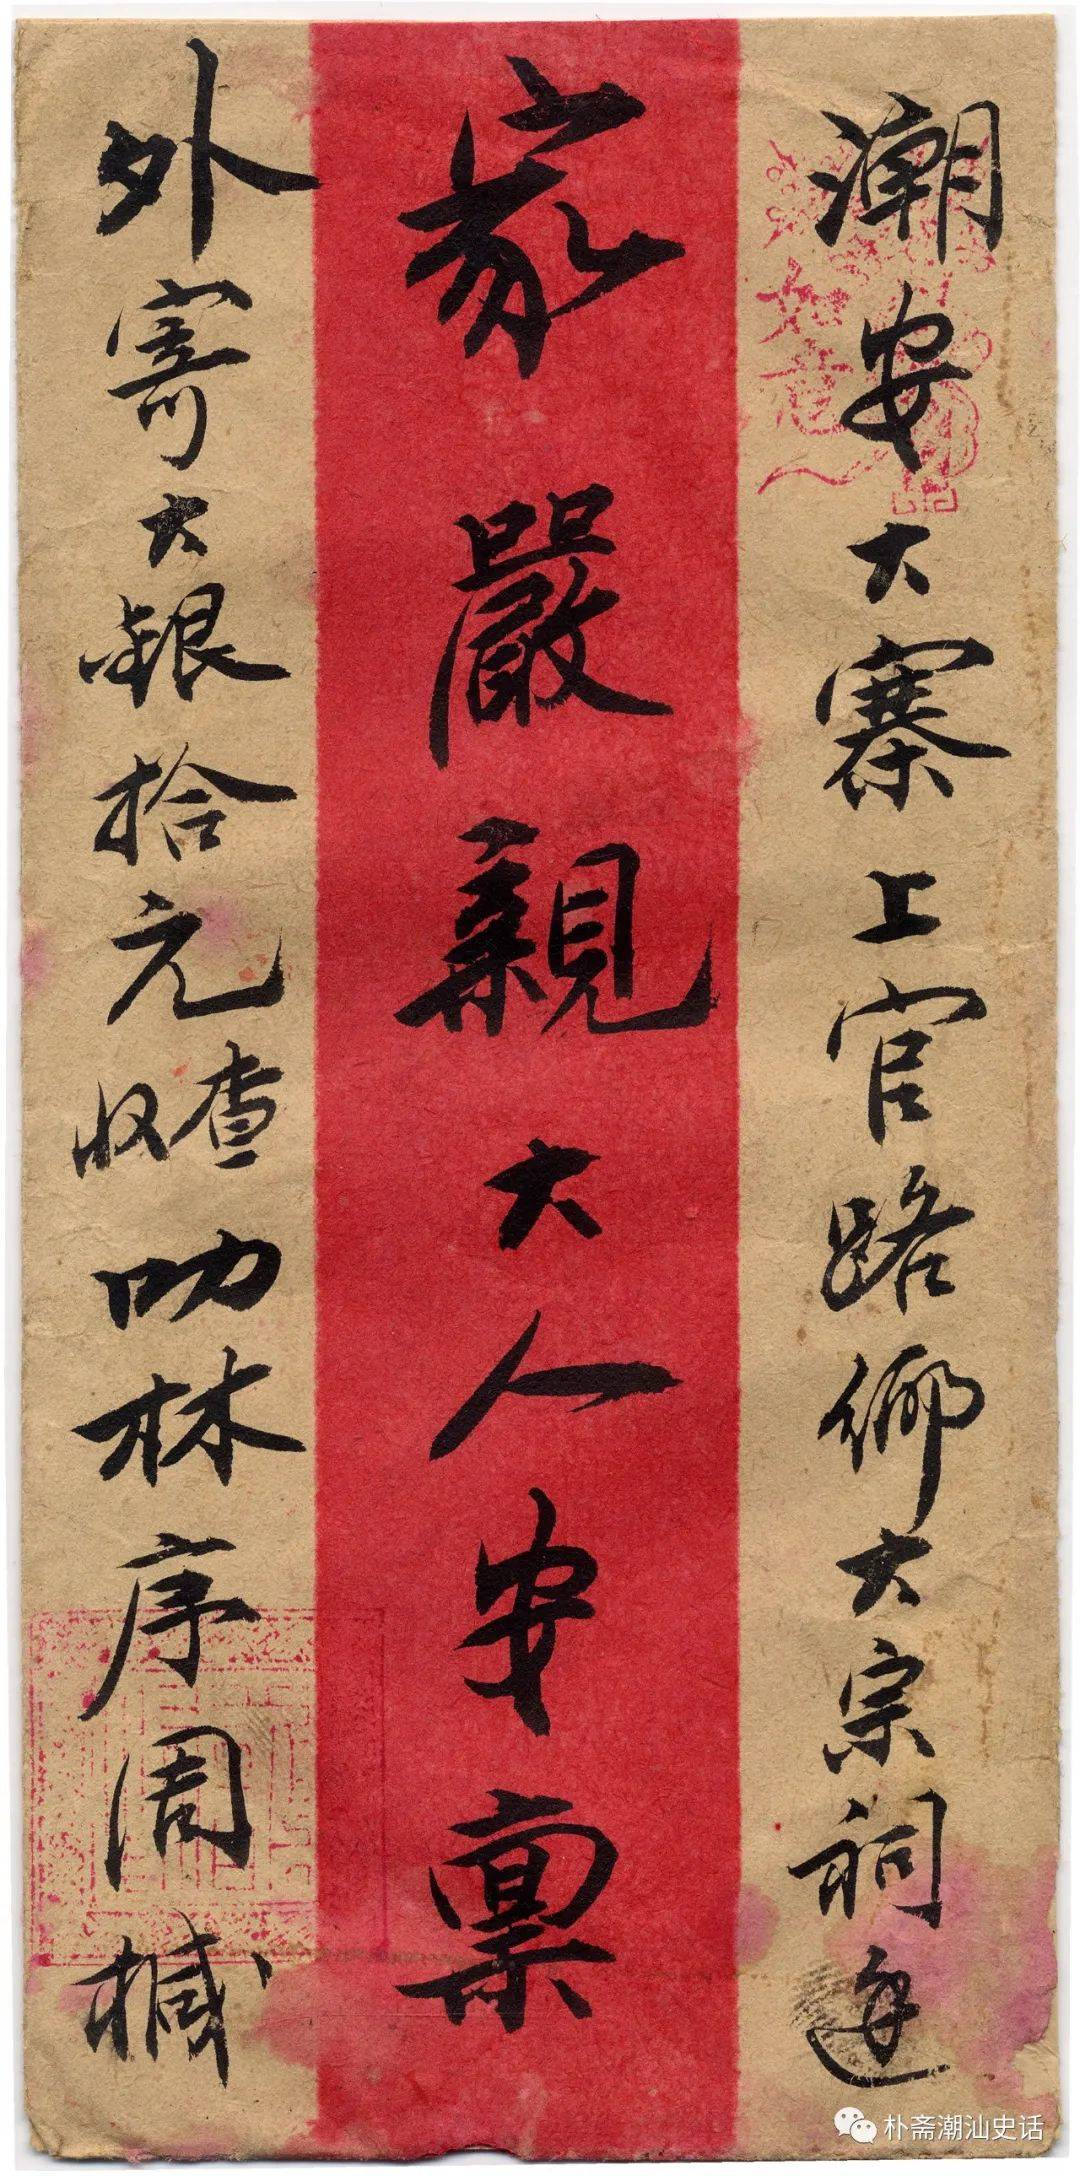 潮安大寨上官路鄉大宗祠
家嚴親大人安禀
外寄大銀拾元查收叻林序周椷
如意
朴斋潮汕史话